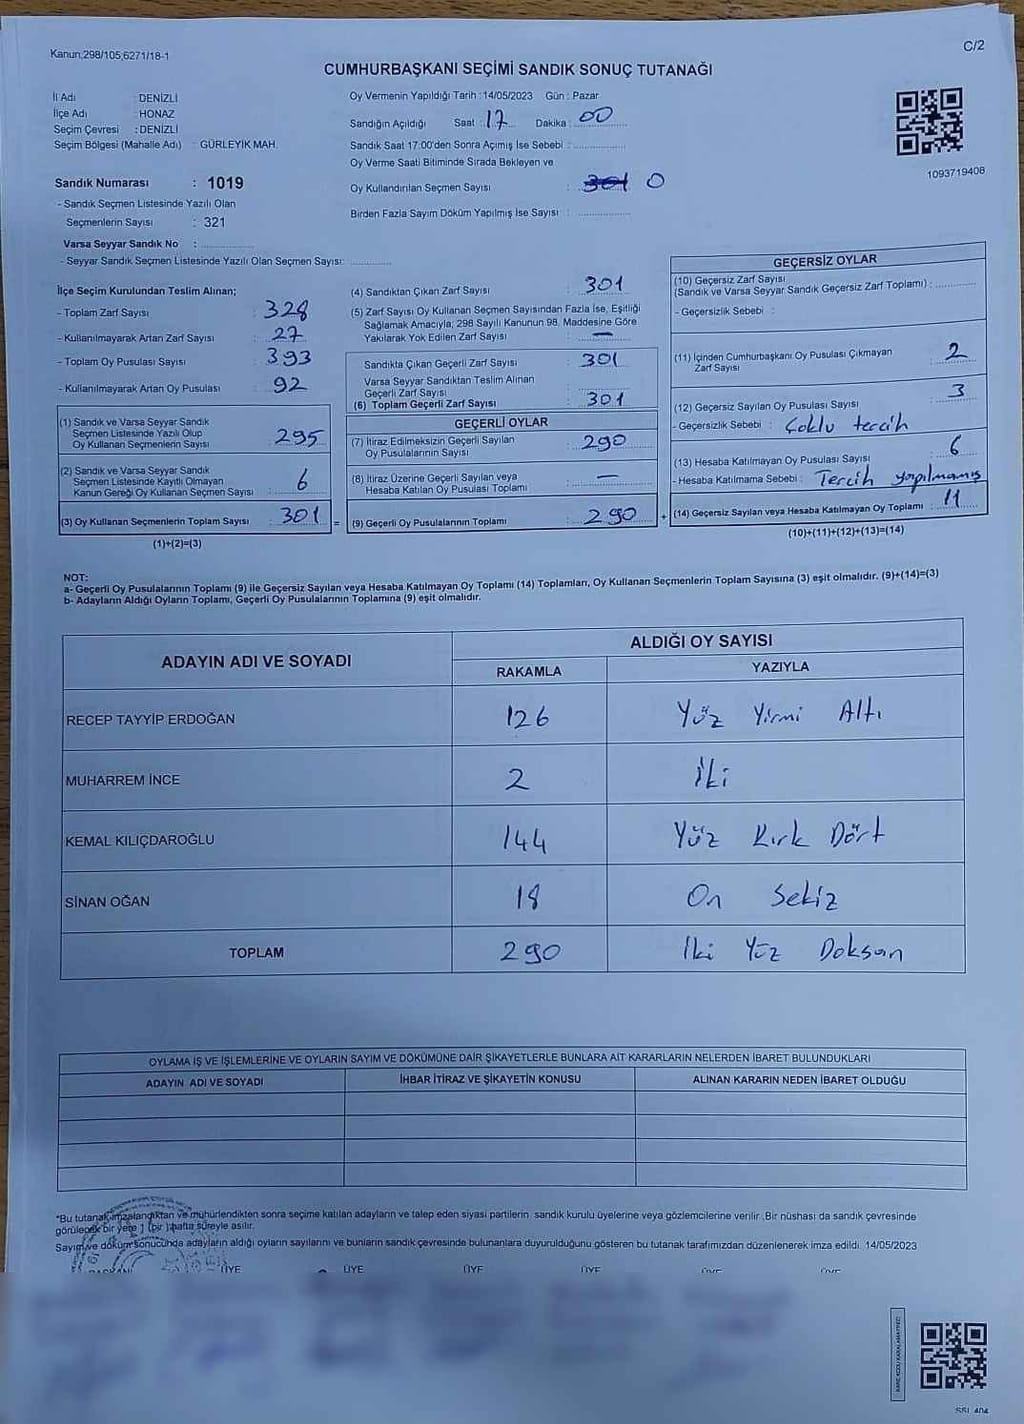 Kanun;298/105;6271/18-1
C/2
CUMHURBAŞKANI SEÇİMİ SANDIK SONUÇ TUTANAĞI
İl Adı : DENİZLİ
İlçe Adı : HONAZ
Seçim Çevresi : DENİZLİ
Seçim Bölgesi (Mahalle Adı) : GÜRLEYİK MAH.
Sandık Numarası : 1019
- Sandık Seçmen Listesinde Yazılı Olan
Seçmenlerin Sayısı : 321
Varsa Seyyar Sandık No :
- Seyyar Sandık Seçmen Listesinde Yazılı Olan Seçmen Sayısı:
Oy Vermenin Yapıldığı Tarih : 14/05/2023 Gün : Pazar
Sandığın Açıldığı Saat : 17 Dakika : 00
Sandık Saat 17:00'den Sonra Açımış İse Sebebi :
Oy Verme Saati Bitiminde Sırada Bekleyen ve
Oy Kullandırılan Seçmen Sayısı : 301 0
Birden Fazla Sayım Döküm Yapılmış İse Sayısı :
1093719408
İlçe Seçim Kurulundan Teslim Alınan;
- Toplam Zarf Sayısı : 328
- Kullanılmayarak Artan Zarf Sayısı : 27
- Toplam Oy Pusulası Sayısı : 393
- Kullanılmayarak Artan Oy Pusulası : 92
(1) Sandık ve Varsa Seyyar Sandık
Seçmen Listesinde Yazılı Olup
Oy Kullanan Seçmenlerin Sayısı : 295
(2) Sandık ve Varsa Seyyar Sandık
Seçmen Listesinde Kayıtlı Olmayan
Kanun Gereği Oy Kullanan Seçmen Sayısı : 6
(3) Oy Kullanan Seçmenlerin Toplam Sayısı : 301 =
(1)+(2)=(3)
(4) Sandıktan Çıkan Zarf Sayısı : 301
(5) Zarf Sayısı Oy Kullanan Seçmen Sayısından Fazla İse, Eşitliği
Sağlamak Amacıyla, 298 Sayılı Kanunun 98. Maddesine Göre
Yakılarak Yok Edilen Zarf Sayısı : —
Sandıkta Çıkan Geçerli Zarf Sayısı : 301
Varsa Seyyar Sandıktan Teslim Alınan
Geçerli Zarf Sayısı :
(6) Toplam Geçerli Zarf Sayısı : 301
GEÇERLİ OYLAR
(7) İtiraz Edilmeksizin Geçerli Sayılan
Oy Pusulalarının Sayısı : 290
(8) İtiraz Üzerine Geçerli Sayılan veya
Hesaba Katılan Oy Pusulası Toplamı : —
(9) Geçerli Oy Pusulalarının Toplamı : 290 +
GEÇERSİZ OYLAR
(10) Geçersiz Zarf Sayısı
(Sandık ve Varsa Seyyar Sandık Geçersiz Zarf Toplamı) :
- Geçersizlik Sebebi :
(11) İçinden Cumhurbaşkanı Oy Pusulası Çıkmayan : 2
Zarf Sayısı
(12) Geçersiz Sayılan Oy Pusulası Sayısı : 3
- Geçersizlik Sebebi : Çoklu tercih
(13) Hesaba Katılmayan Oy Pusulası Sayısı : 6
- Hesaba Katılmama Sebebi : Tercih yapılmamış
(14) Geçersiz Sayılan veya Hesaba Katılmayan Oy Toplamı : 11
(10)+(11)+(12)+(13)=(14)
NOT:
a- Geçerli Oy Pusulalarının Toplamı (9) ile Geçersiz Sayılan veya Hesaba Katılmayan Oy Toplamı (14) Toplamları, Oy Kullanan Seçmenlerin Toplam Sayısına (3) eşit olmalıdır. (9)+(14)=(3)
b- Adayların Aldığı Oyların Toplamı, Geçerli Oy Pusulalarının Toplamına (9) eşit olmalıdır.
ADAYIN ADI VE SOYADI ALDIĞI OY SAYISI
RAKAMLA YAZIYLA
RECEP TAYYİP ERDOĞAN 126 Yüz Yirmi Altı
MUHARREM İNCE 2 İki
KEMAL KILIÇDAROĞLU 144 Yüz Kırk Dört
SİNAN OĞAN 18 On Sekiz
TOPLAM 290 İki Yüz Doksan
OYLAMA İŞ VE İŞLEMLERİNE VE OYLARIN SAYIM VE DÖKÜMÜNE DAİR ŞİKAYETLERLE BUNLARA AİT KARARLARIN NELERDEN İBARET BULUNDUKLARI
ADAYIN ADI VE SOYADI İHBAR İTİRAZ VE ŞİKAYETİN KONUSU ALINAN KARARIN NEDEN İBARET OLDUĞU
*Bu tutanak imzalandıktan ve mühürlendikten sonra seçime katılan adayların ve talep eden siyasi partilerin sandık kurulu üyelerine veya gözlemcilerine verilir .Bir nüshası da sandık çevresinde
görülecek bir yere 1 (bir ) hafta süreyle asılır.
Sayım ve döküm sonucunda adayların aldığı oyların sayılarını ve bunların sandık çevresinde bulunanlara duyurulduğunu gösteren bu tutanak tarafımızdan düzenlenerek imza edildi. 14/05/2023
BAŞKAN ÜYE ÜYE ÜYE ÜYE ÜYE ÜYE